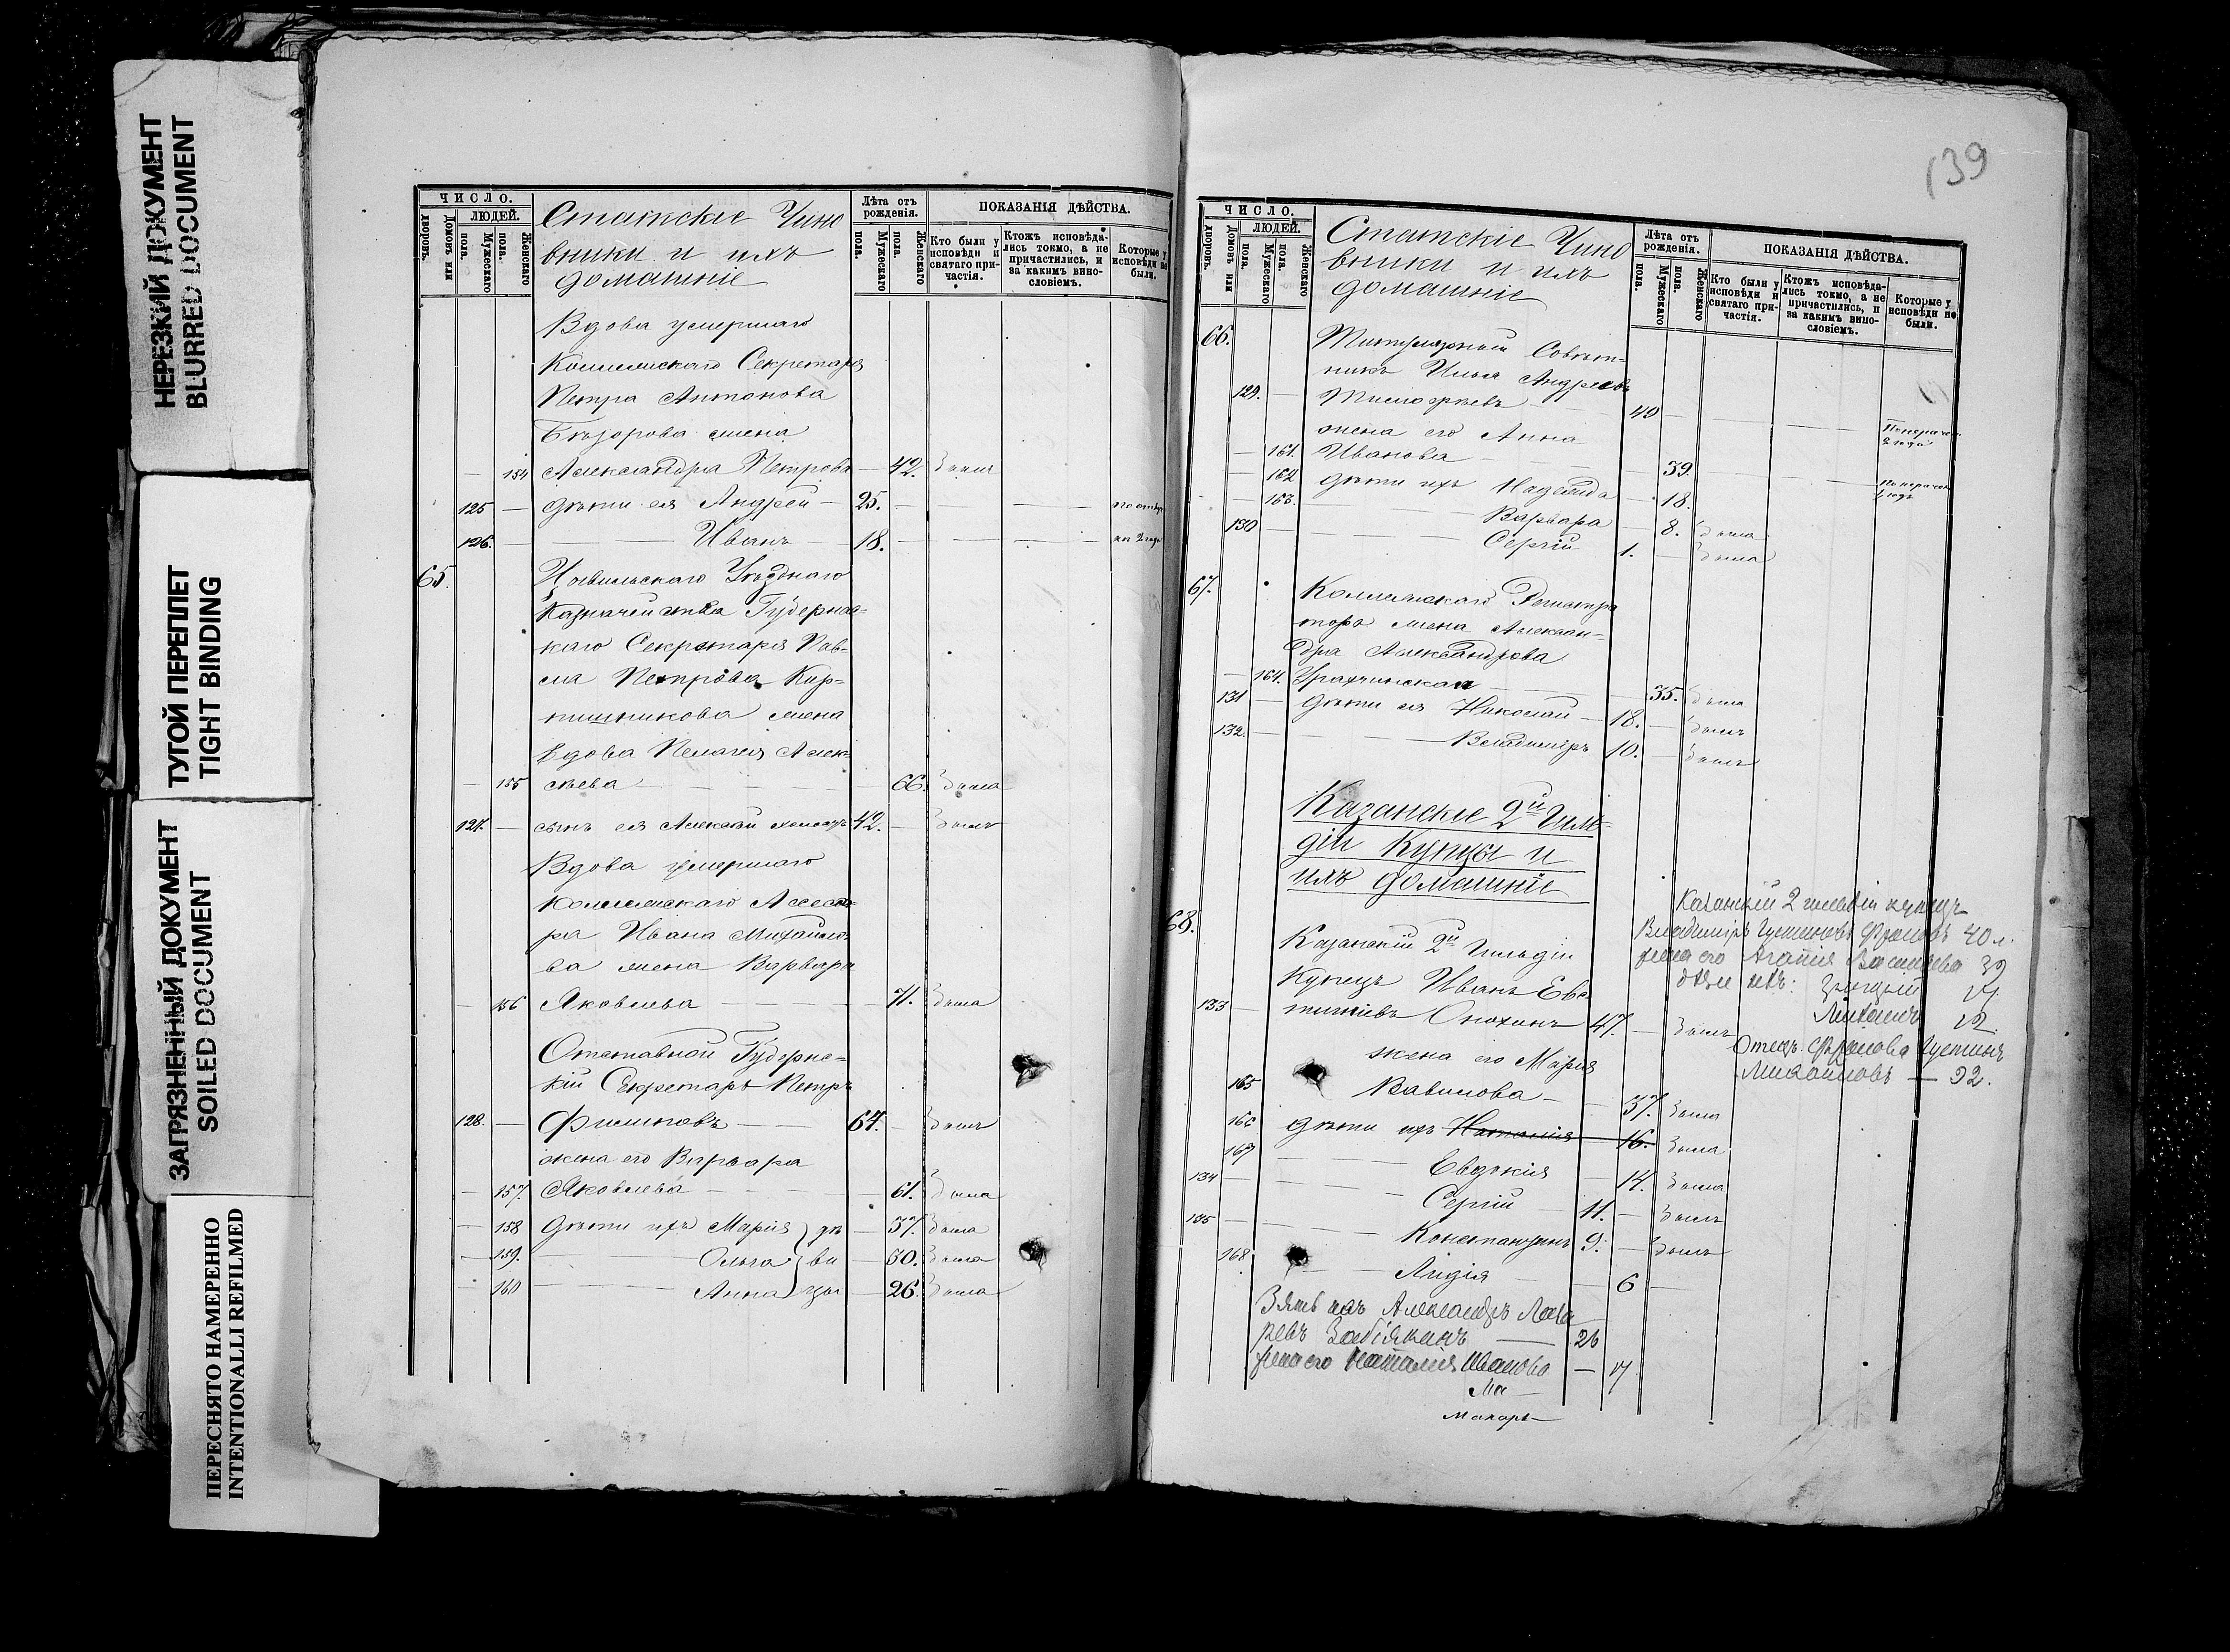 НЕРЕЗКИЙ ДОКУМЕНТ
BLURRED DOCUMENT
ТУГОЙ ПЕРЕПЛЕТ
TIGHT BINDING
ЗАГРЯЗНЕННЫЙ ДОКУМЕНТ
SOILED DOCUMENT
ПЕРЕСНЯТО НАМЕРЕННО
INTENTIONALLI REFILMED
ЧИСЛО.
ЛЮДЕЙ.
Домовъ или дворовъ.
Мужескаго пола.
Женскаго пола.
Статскіе Чино
вники и ихъ
домашніе
Лѣта отъ рожденія.
Мужескаго пола.
Женскаго пола.
ПОКАЗАНІЯ ДѢЙСТВА.
Кто были у исповѣди и святаго причастія.
Ктожъ исповѣда-
лись токмо, а не
причастились, и
за какимъ вино-
словіемъ.
Которые у исповѣди не были.
Вдова умершаго
Коллежскаго Секретаря
Петра Антонова
жена
154 Александра Петрова — 42. была
125 — дѣти ея Андрей — 25.
126. — Иванъ 18.
65. Цивильскаго Уѣзднаго
Казначейства Губернс-
каго Секретаря Пав-
ла Петрова Кир-
пишникова жена
вдова Пелагея Алек-
155 сѣева 66. была
127. — сынъ ея Алексѣй 42. — былъ
Вдова умершаго
Коллежскаго Ассесо-
ра Ивана Михайло-
ва жена Варвара
156 Яковлева 71. была
Отставной Губернс-
кій Секретарь Петръ
128. — Филиповъ 64. — былъ
жена его Варвара
157. Яковлева 61. была
158 дѣти ихъ Марія дѣ — 37. была
159. Ольга ви — 30. была
160 Анна цы — 26. была
139
ЧИСЛО.
ЛЮДЕЙ.
Домовъ или дворовъ.
Мужескаго пола.
Женскаго пола.
Статскіе Чино
вники и ихъ
домашніе
Лѣта отъ рожденія.
Мужескаго пола.
Женскаго пола.
ПОКАЗАНІЯ ДѢЙСТВА.
Кто были у исповѣди и святаго причастія.
Ктожъ исповѣда-
лись токмо, а не
причастились, и
за какимъ вино-
словіемъ.
Которые у исповѣди не были.
66. Титулярный Совѣт-
никъ Илья Андреевъ
129. — Тимофѣевъ 40
жена его Анна
161. Иванова 39.
162 дѣти ихъ Надежда 18.
163. Варвара 8. была
130 Сергій 1. была
67. Коллежскаго Регистра
тора жена Алексан-
дра Александрова
164. 35. была
131 — дѣти ея Николай — 18. — былъ
132. Владиміръ 10. — былъ
Казанскіе 2й Гиль-
діи Купцы и
ихъ домашніе
68.
Казанскій 2й Гильдіи
Купецъ Иванъ Евс
133 — тигнѣевъ 47. — былъ
жена его Марія
165 Вавилова — 37. была
166 дѣти ихъ Наталія 16. была
167 Евдокія 14. была
134 Сергій 11. — былъ
135 Константинъ 9. — былъ
168 Лидія 6
Зять ихъ Александръ Лаза
ревъ 26
жена его Наталія Иванова — 17
Ма —
Макаръ —
Казанскій 2 гильдіи купецъ
Владиміръ 40 л.
жена его Васильева 39
дѣти ихъ:
Отецъ
Михайловъ — 92.